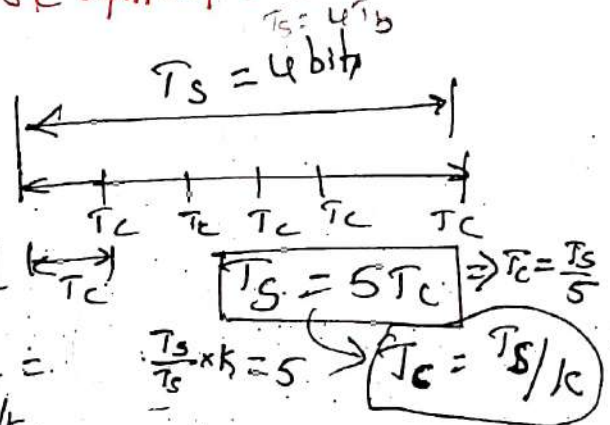 Ts = 4Tb
Ts = 4 bits
Tc Tc Tc Tc Tc
Tc
Ts = 5Tc ⇒ Tc = Ts/5
Ts/Ts × k = 5 → Tc = Ts/k